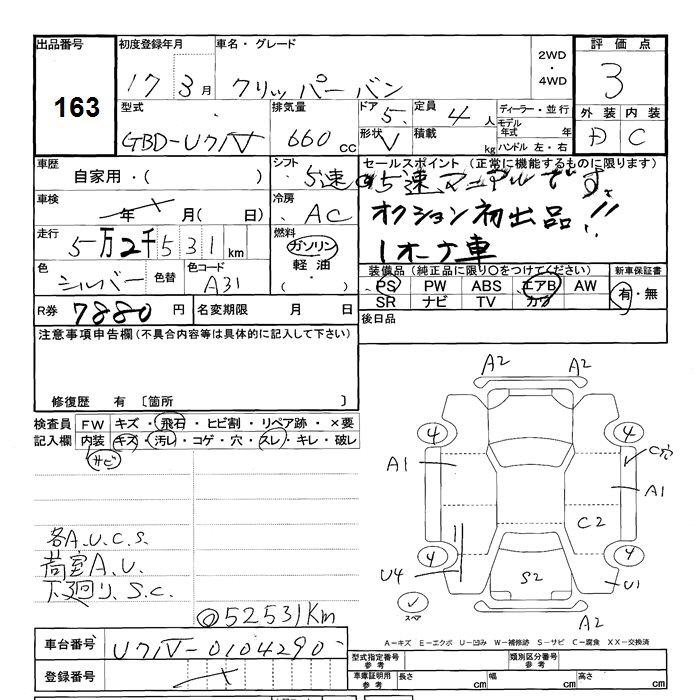 出品番号 初度登録年月 車名・グレード 2WD・4WD 評価点
163 17 3月 クリッパー バン 3
型式 排気量 ドア 5 定員 4人 ディーラー・並行 外装 内装
GBD-U71V 660cc 形状 V 積載 kg モデル年式 年 ハンドル 左・右 D C
車歴 自家用・( ) シフト 5速 セールスポイント (正常に機能するものに限ります)
5速マニュアルです。
車検 年 月( 日) 冷房 AC オクション初出品!!
走行 5万2千531km 燃料 ガソリン 軽油・( ) 1オーナ車
色 シルバー 色替 色コード A31 装備品(純正品に限り○をつけてください) 新車保証書
PS PW ABS エアB AW 有・無
SR ナビ TV カワ
R券 7880円 名変期限 月 日 後日品
注意事項申告欄(不具合内容等は具体的に記入して下さい)
修復歴 有 〔箇所 〕
検査員記入欄 FW キズ・飛石・ヒビ割・リペア跡・×要
内装 キズ・汚レ・コゲ・穴・スレ・キレ・破レ
サビ
A2 A2
4 4 C穴
A1 A1
C2
4 4
U4 S2 U1
スペア A2
各A.U.C.S.
荷室A.U.
下廻り、S.C.
◎52531Km
A-キズ E-エクボ U-凹み W-補修跡 S-サビ C-腐食 XX-交換済
車台番号 U71V-0104290 型式指定番号 参考 類別区分番号 参考
登録番号 車庫証明用 参考 長さ cm 幅 cm 高さ cm